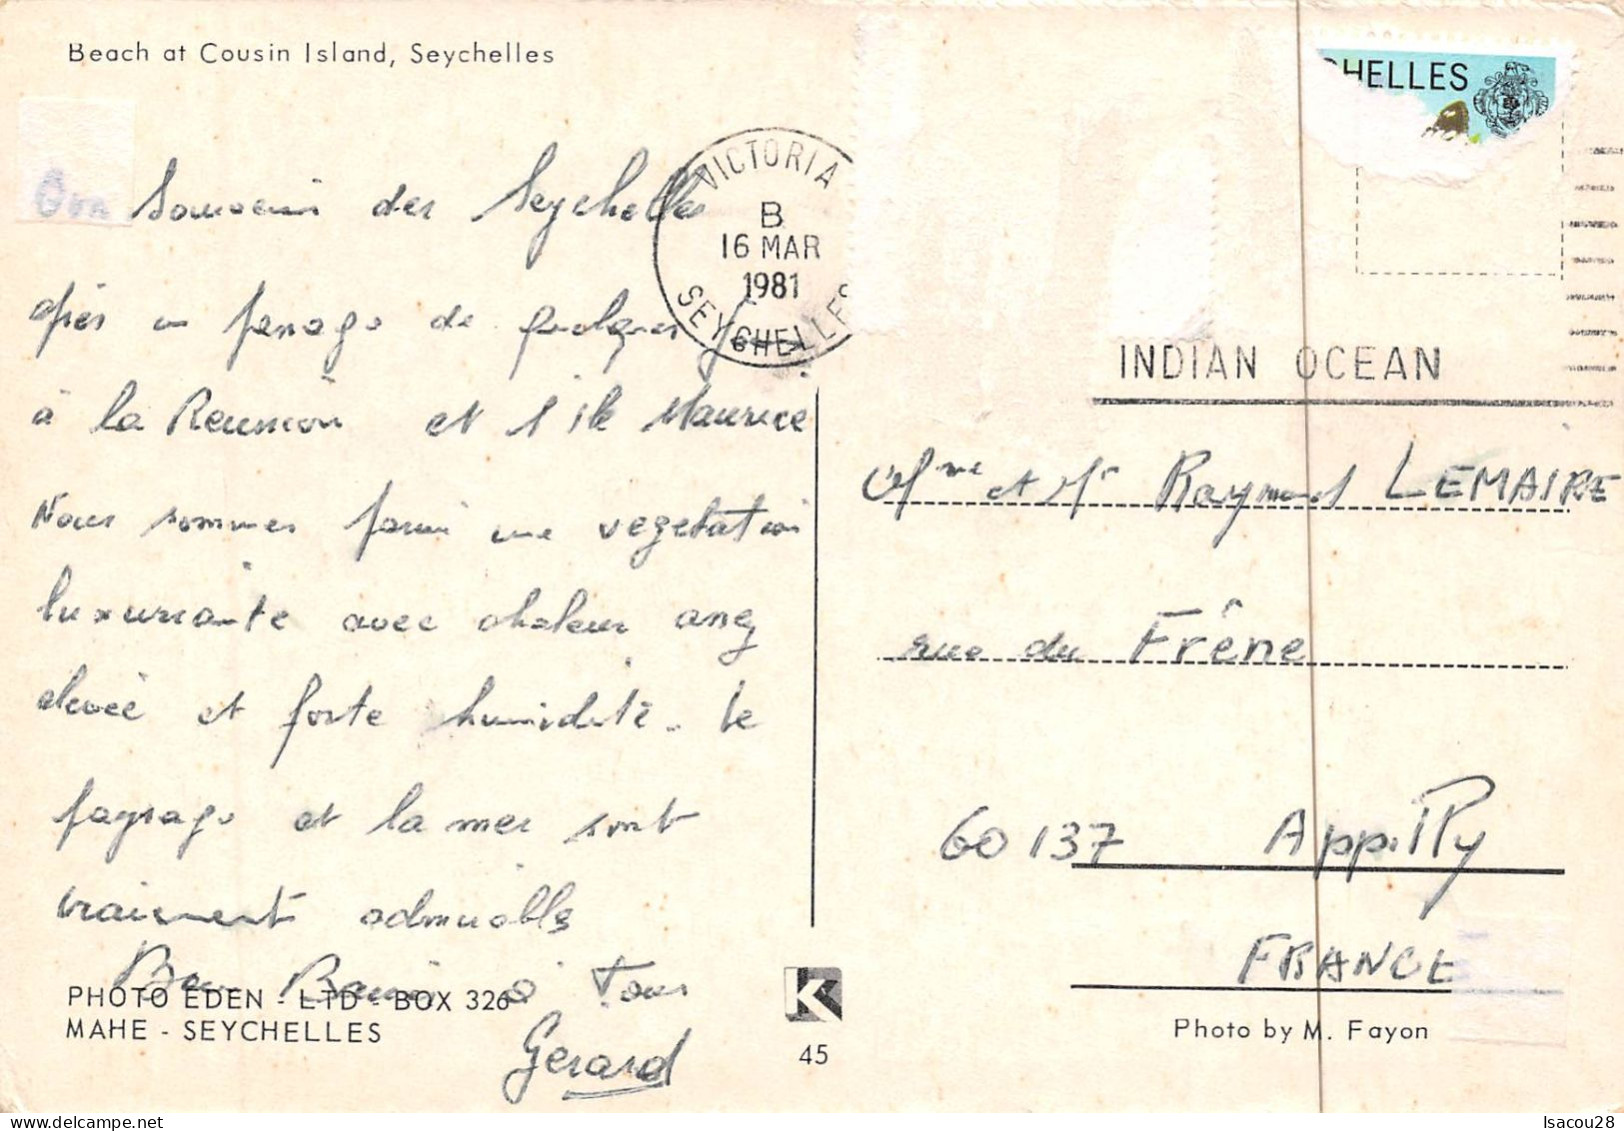 Beach at Cousin Island, Seychelles
Bon Souvenir des Seychelles
après un passage de quelques J
à la Reunion et l'ile Maurice
Nous sommes parmi une vegetation
luxuriante avec chaleur assez
elevée et forte humidité. Le
paysage et la mer sont
vraiment admirable
Bons Baisers à Tous
Gerard
PHOTO EDEN - LTD - BOX 326
MAHE - SEYCHELLES
VICTORIA
B
16 MAR
1981
SEYCHELLES
CHELLES
INDIAN OCEAN
Mme et Mr Raymond LEMAIRE
rue du Frêne
60137 Appilly
FRANCE
Photo by M. Fayon
K
45
Isacou28